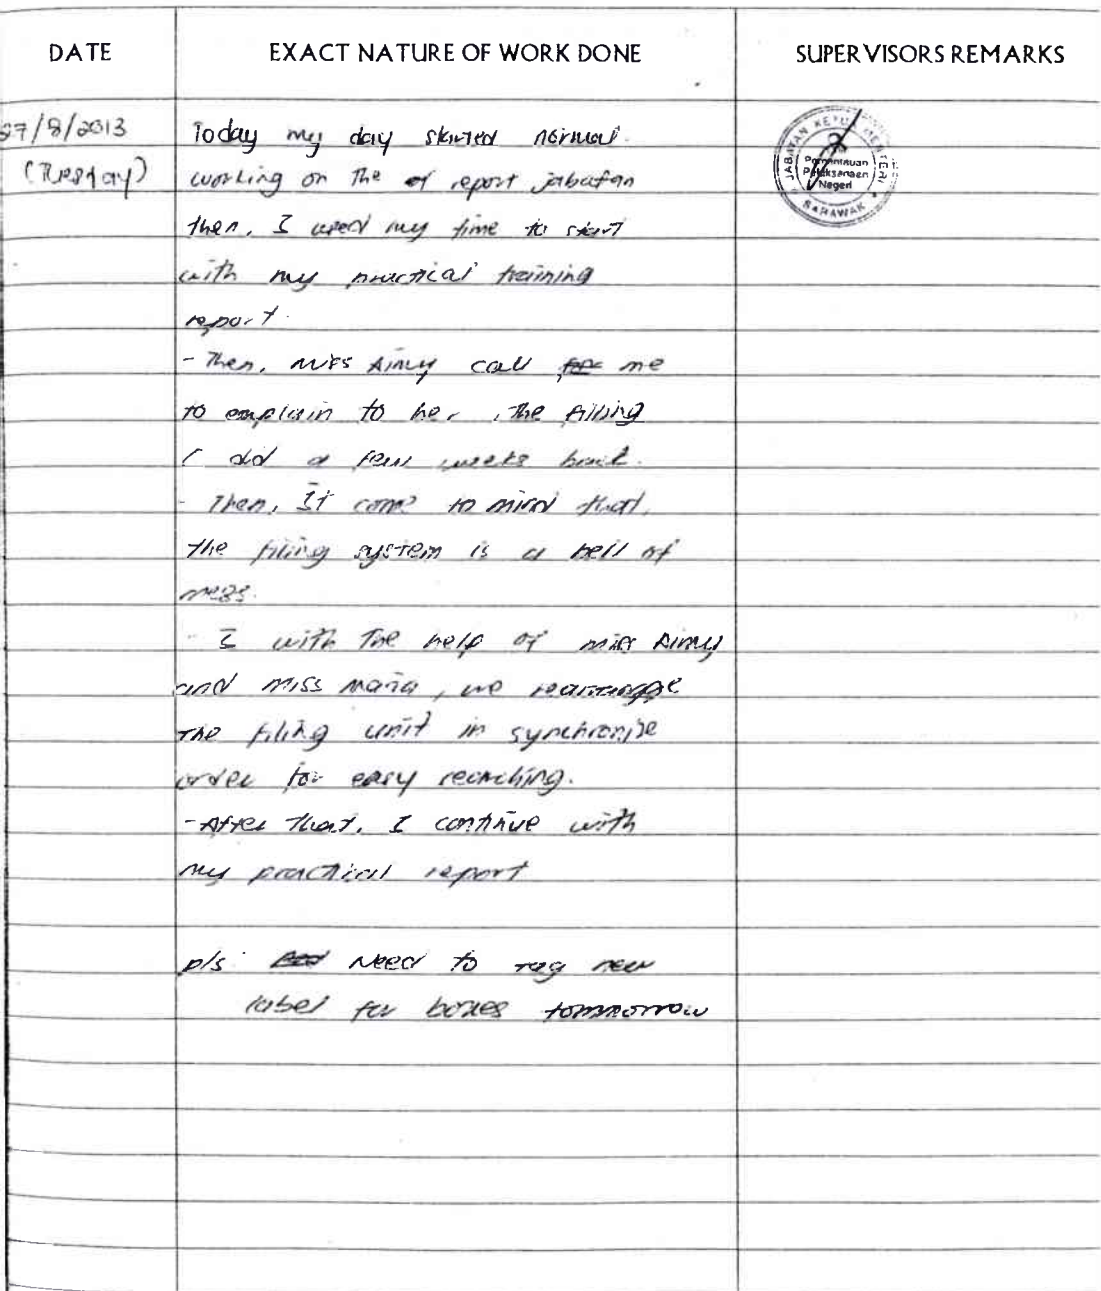 DATE EXACT NATURE OF WORK DONE SUPERVISORS REMARKS
27/8/2013 Today my day started normal.
working on the report jabatan
then, I used my time to start
with my practical training
report.
- Then, miss Aimy call me
to explain to her, the filing
I did a few weeks back.
- Then, It come to mind that,
the filing system is a hell of
mess.
- I with The help of miss Aimy
and miss maria, we rearrange
The filing unit in synchronise
order for easy searching.
- After that, I continue with
my practical report
p/s: Need to tag new
label for boxes tommorrow
JABATAN KETUA MENTERI
Pemantauan
Pelaksanaan
Negeri
SARAWAK